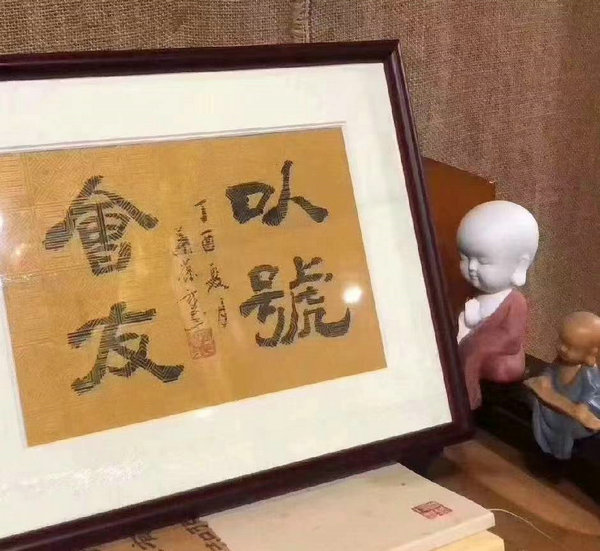 以號
會友
丁酉夏月